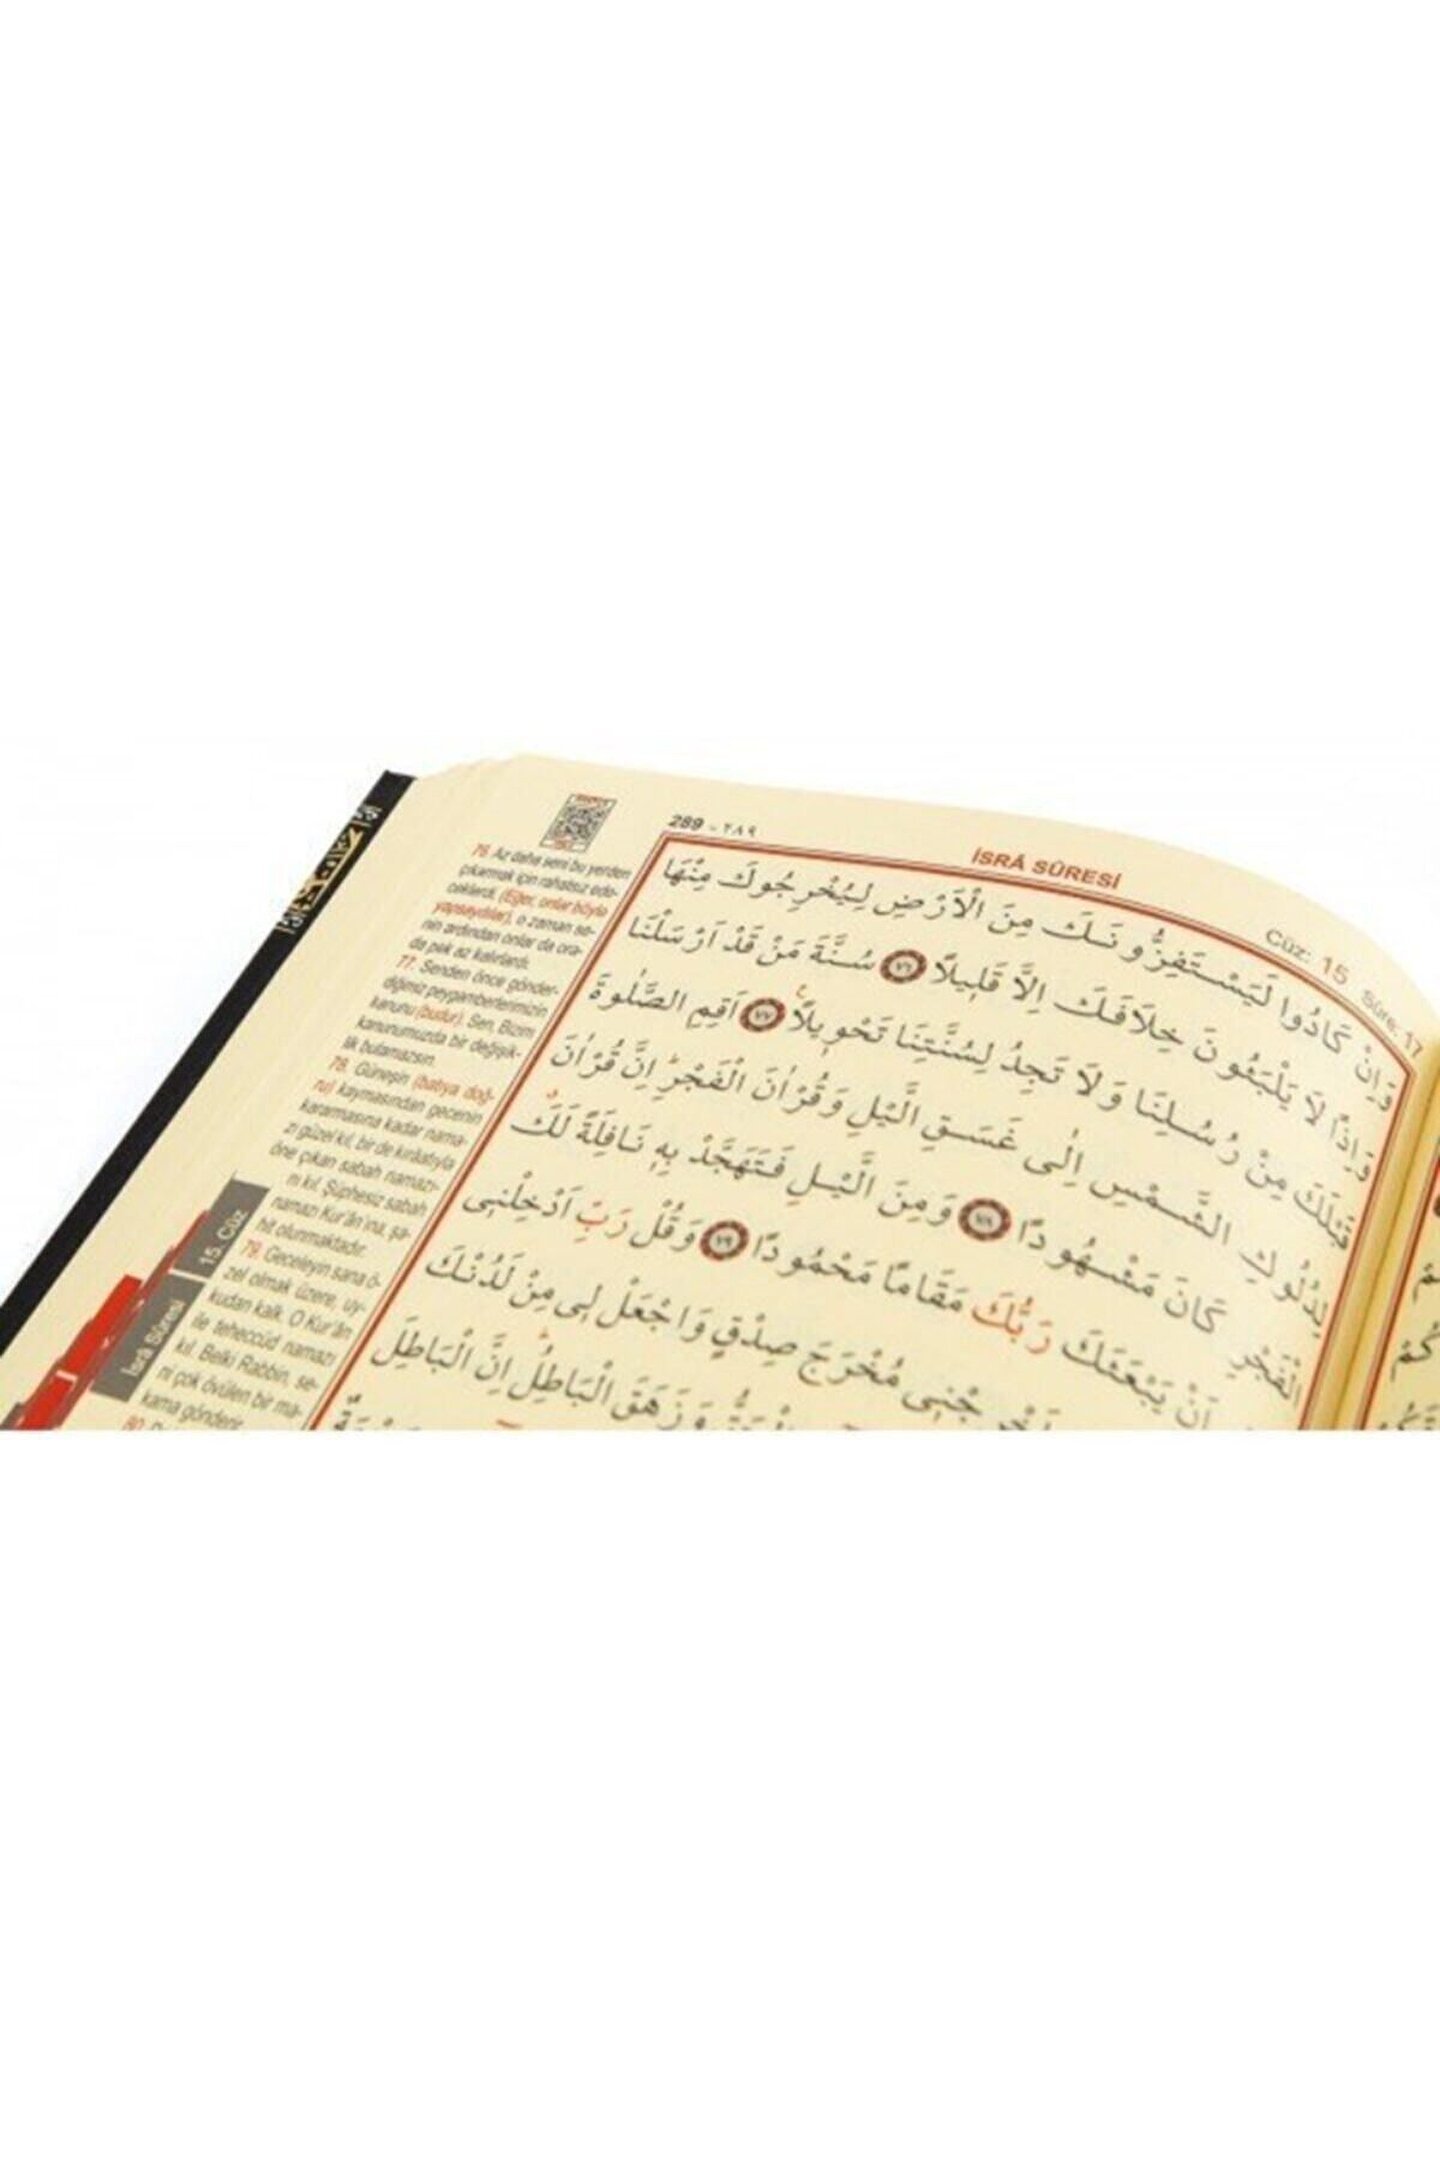 289 - ٢٨٩
İSRÂ SÛRESİ
Cüz: 15 Sûre: 17
وَاِنْ كَادُوا لَيَسْتَفِزُّونَكَ مِنَ الْاَرْضِ لِيُخْرِجُوكَ مِنْهَا
وَاِذًا لَا يَلْبَثُونَ خِلَافَكَ اِلَّا قَلِيلًا ٧٦ سُنَّةَ مَنْ قَدْ اَرْسَلْنَا
قَبْلَكَ مِنْ رُسُلِنَا وَلَا تَجِدُ لِسُنَّتِنَا تَحْوِيلًا ٧٧ اَقِمِ الصَّلٰوةَ
لِدُلُوكِ الشَّمْسِ اِلٰى غَسَقِ الَّيْلِ وَقُرْاٰنَ الْفَجْرِ اِنَّ قُرْاٰنَ
الْفَجْرِ كَانَ مَشْهُودًا ٧٨ وَمِنَ الَّيْلِ فَتَهَجَّدْ بِهِ نَافِلَةً لَكَ
اَنْ يَبْعَثَكَ رَبُّكَ مَقَامًا مَحْمُودًا ٧٩ وَقُلْ رَبِّ اَدْخِلْنِى
مُخْرَجَ صِدْقٍ وَاجْعَلْ لِى مِنْ لَدُنْكَ
وَزَهَقَ الْبَاطِلُ اِنَّ الْبَاطِلَ
76. Az daha seni bu yerden
çıkarmak için rahatsız ede-
ceklerdi. (Eğer, onlar böyle
yapsaydılar), o zaman se-
nin ardından onlar da ora-
da pek az kalırlardı.
77. Senden önce gönder-
diğimiz peygamberlerimizin
kanunu (budur). Sen, Bizim
kanunumuzda bir değişik-
lik bulamazsın.
78. Güneşin (batıya doğ-
ru) kaymasından gecenin
kararmasına kadar nama-
zı güzel kıl, bir de kırâatıyla
öne çıkan sabah namazı-
nı kıl. Şüphesiz sabah
namazı Kur'ân'ına, şa-
hit olunmaktadır.
79. Geceleyin sana ö-
zel olmak üzere, uy-
kudan kalk. O Kur'ân
ile teheccüd namazı
kıl. Belki Rabbin, se-
ni çok övülen bir ma-
kama gönderir.
80.
15. Cüz
İsrâ Sûresi